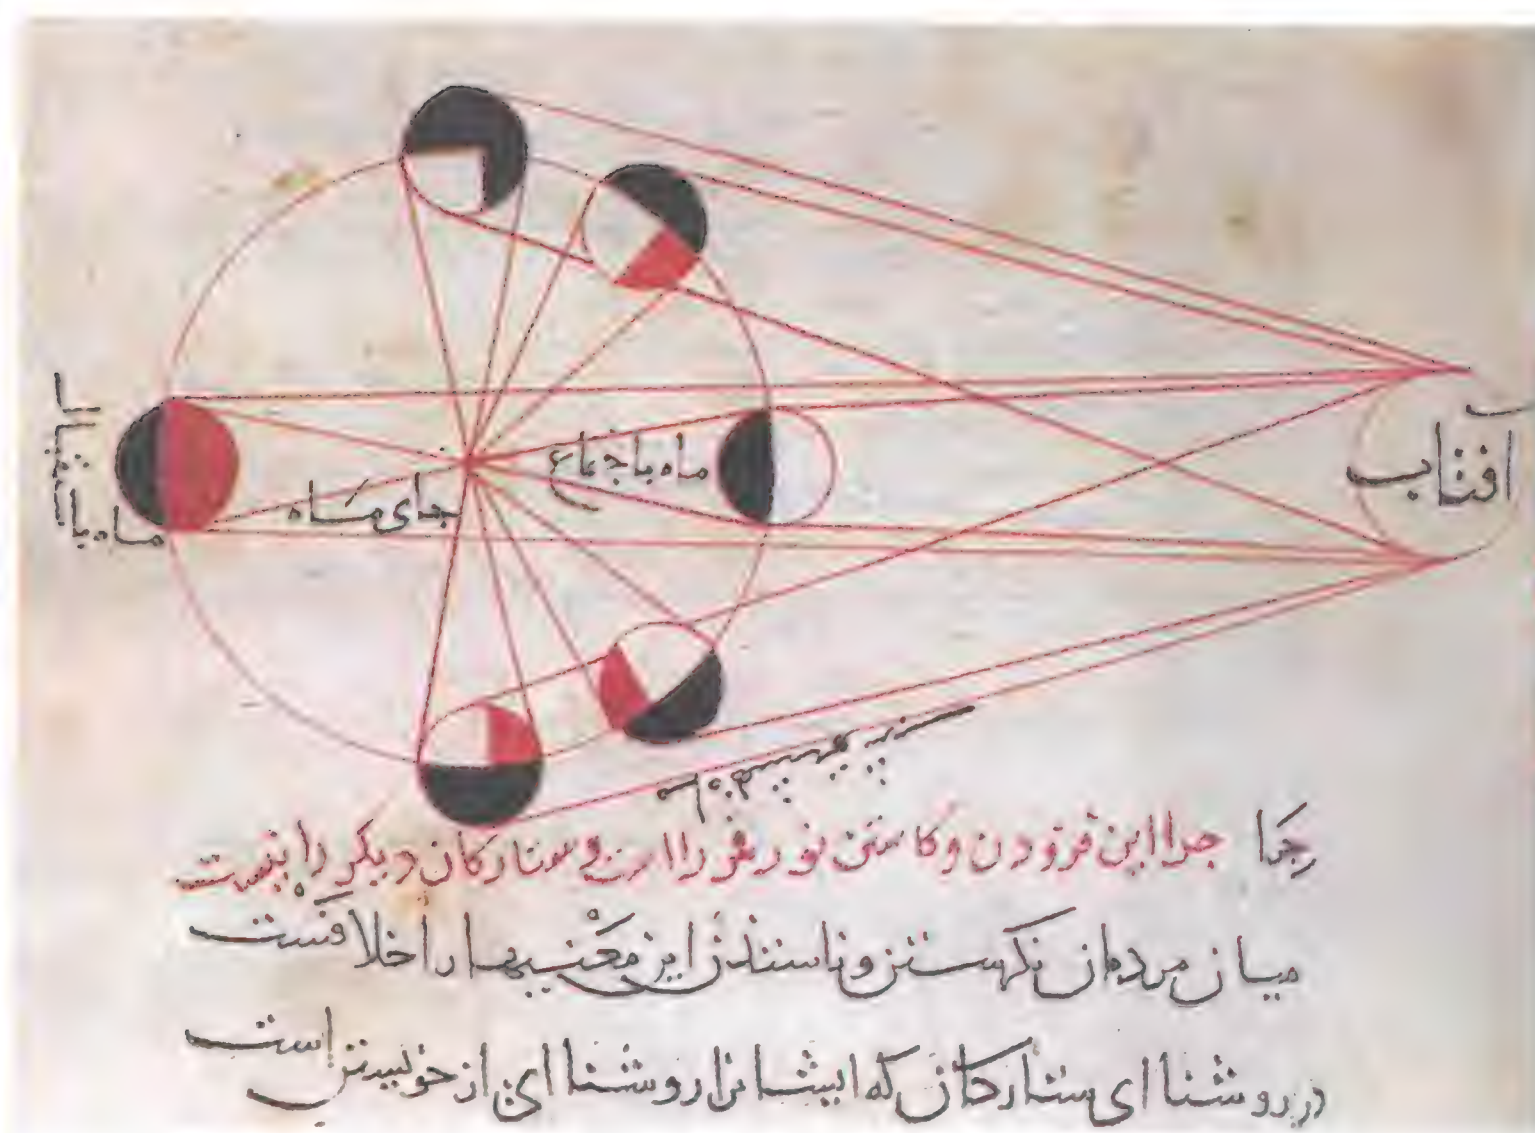 آفتاب
ماه باجتماع
جای ماه
ماه باستقبال
چرا این فزودن و کاستن نور قمر را است و ستارکان دیکر را نیست
میان مردمان نکرستن و باستندن این معنیها را خلافست
در روشناای ستارکان که ایشانرا روشناای از خویشتن است